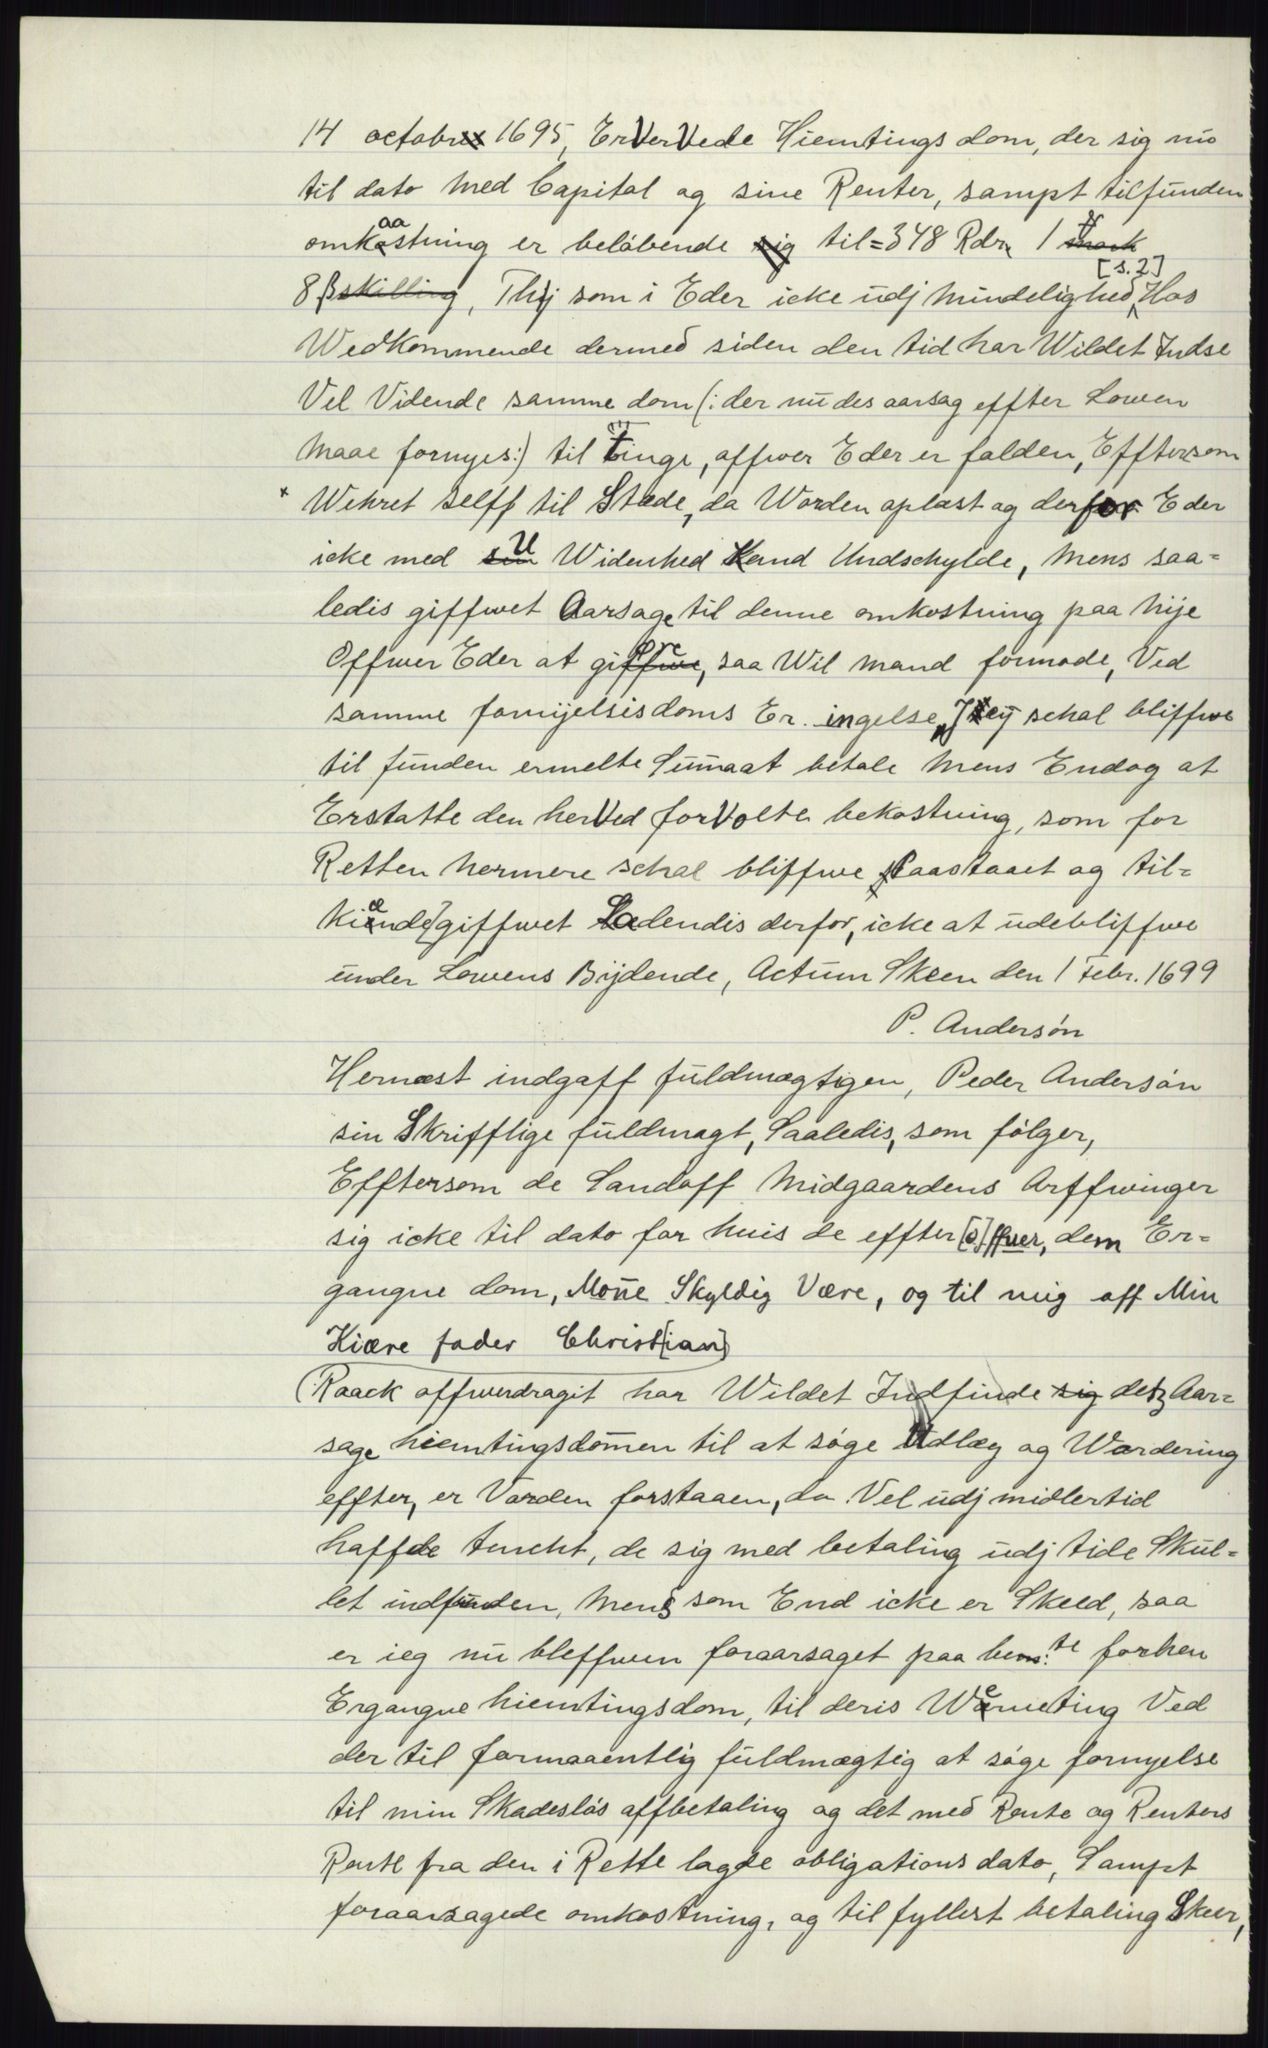 14 octobris 1695, ErVerVede Hiemtings dom, der sig nu
til dato med Capital og sine Renter, sampt tilfunden
omkaastning er beløbende til = 348 Rdr. 1
8 β, Thj som i Eder icke udj mindelighed [s. 2] Hos
Wedkommende dermed siden den tid har Wildet Indse
Vel Vidende samme dom (: der nu des aarsag effter Lowen
maae fornyes :) til Tinge, offwer Eder er falden, Efftersom
x Wehret selff til Stæde, da Worden oplæst og derfor Eder
icke med U Widenhed Kand Undschylde, mens saa-
ledis giffwet Aarsage til denne omkostning paa nije
Offwer Eder at giøre, saa Wil mand formode, Ved
samme fornijelsisdoms Er. ingelse, J eÿ schal bliffwe
til funden ermelte Sumaat betale mens Endog at
Erstatte den herVed forVolte bekostning, som for
Retten nermere schal bliffwe Paastaaet og til-
kiænde giffwet Ladendis derfor, icke at udebliffwe
under Lowens Bijdende, Actum Skeen den 1 Febr. 1699
P. Andersøn
Hernæst indgaff fuldmægtigen, Peder Andersøn
sin Skrifftlige fuldmagt, Saaledis, som følger,
Efftersom de Sandøff Midgaardens Arffwinger
sig icke til dato for huis de effter [o]ffuer, dem Er-
gangne dom, Mone Skyldig Være, og til mig aff Min
Kiære fader Christ[ian]
Raack offwerdragit har Wildet Indfinde sig detz Aar-
sage hiemtingsdommen til at søge Udlæg og Wordering
effter, er Vorden forstaaen, da Vel udj midlertid
haffde tencht, de sig med betaling udj tide Skul-
let indfunden, mens som End icke er Skeed, saa
er ieg nu bleffwen foraarsaget paa bem:te forhen
Ergangne hiemtingsdom, til deris Werneting Ved
der til formaaentlig fuldmægtig at søge fornyelse
til min Skadesløs affbetaling og det med Rente og Renters
Rente fra den i Rette lagde obligations dato, Sampt
foraarsagede omkostning, og til fyllest betaling Skeer,